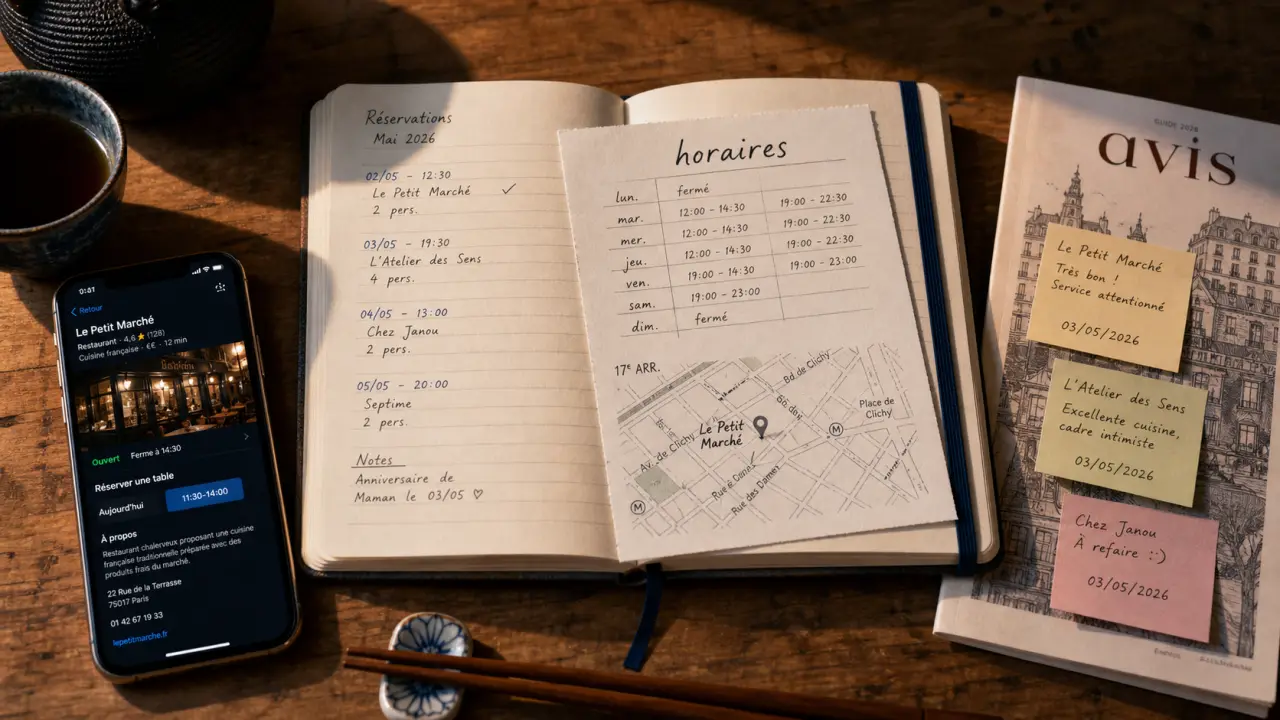 0:41
Retour
Le Petit Marché
Restaurant · 4,6 ★ (128)
Cuisine française · €€ · 12 min
Ouvert Ferme à 14:30
Réserver une table
Aujourd'hui 11:30-14:00
À propos
Restaurant chalerveux proposant une cuisine
française traditionnelle préparée avec des
produits frais du marché.
22 Rue de la Terrasse
75017 Paris
01 42 67 19 33
lepetitmarche.fr
Réservations
Mai 2026
02/05 – 12:30
Le Petit Marché ✓
2 pers.
03/05 – 19:30
L'Atelier des Sens
4 pers.
04/05 – 13:00
Chez Janou
2 pers.
05/05 – 20:00
Septime
2 pers.
Notes
Anniversaire de
Maman le 03/05 ♡
horaires
lun. fermé
mar. 12:00 – 14:30 19:00 – 22:30
mer. 12:00 – 14:30 19:00 – 22:30
jeu. 12:00 – 14:30 19:00 – 22:30
ven. 19:00 – 14:30 19:00 – 23:00
sam. 19:00 – 23:00
dim. fermé
17ᵉ ARR.
Bd de Clichy
Place de
Clichy
Le Petit
Marché
M
Av. de Clichy
Rue des Dames
M
GUIDE 2026
avis
Le Petit Marché
Très bon !
Service attentionné
03/05/2026
L'Atelier des Sens
Excellente cuisine,
cadre intimiste
03/05/2026
Chez Janou
À refaire :)
03/05/2026